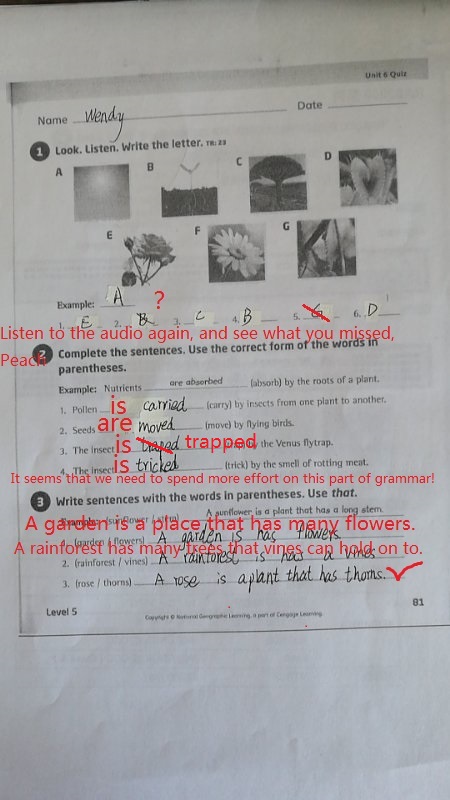 Unit 6 Quiz
Name Wendy Date
1 Look. Listen. Write the letter. TR: 23
A B C D
E F G
Example: A ?
1. E 2. B 3. C 4. B 5. G 6. D
Listen to the audio again, and see what you missed,
Peach
2 Complete the sentences. Use the correct form of the words in
parentheses.
Example: Nutrients are absorbed (absorb) by the roots of a plant.
1. Pollen is carried (carry) by insects from one plant to another.
2. Seeds are moved (move) by flying birds.
3. The insect is traped trapped by the Venus flytrap.
4. The insect is tricked (trick) by the smell of rotting meat.
It seems that we need to spend more effort on this part of grammar!
3 Write sentences with the words in parentheses. Use that.
A sunflower is a plant that has a long stem.
A garden is a place that has many flowers.
(garden / flowers) A garden is has flowers
A rainforest has many trees that vines can hold on to.
2. (rainforest / vines) A rainforest is has a vines
3. (rose / thorns) A rose is a plant that has thorns.
Level 5 81
Copyright © National Geographic Learning, a part of Cengage Learning.